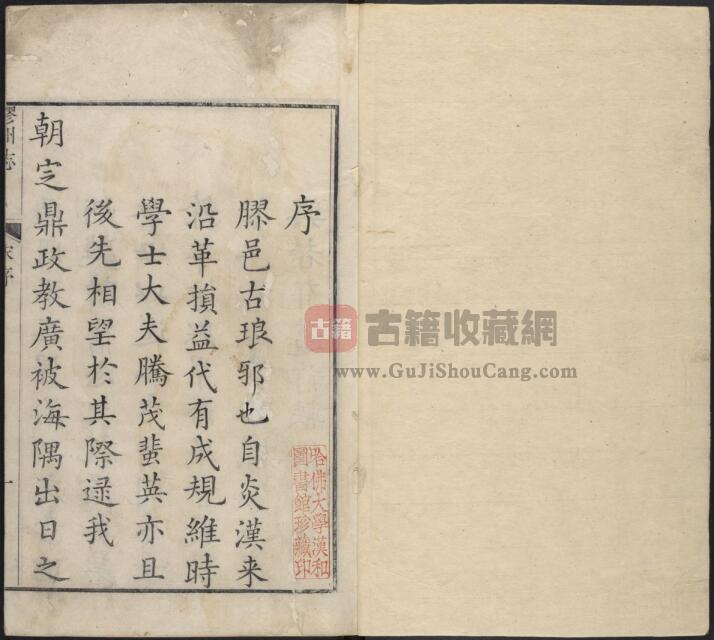 序
膠邑古琅邪也自炎漢来
沿革損益代有成規維時
學士大夫騰茂蜚英亦且
後先相望於其際逯我
朝㝎鼎政教廣被海隅出日之
膠州志
序
一
哈佛大學漢和
圖書館珍藏印
古籍
古籍收藏網
www.GuJiShouCang.com